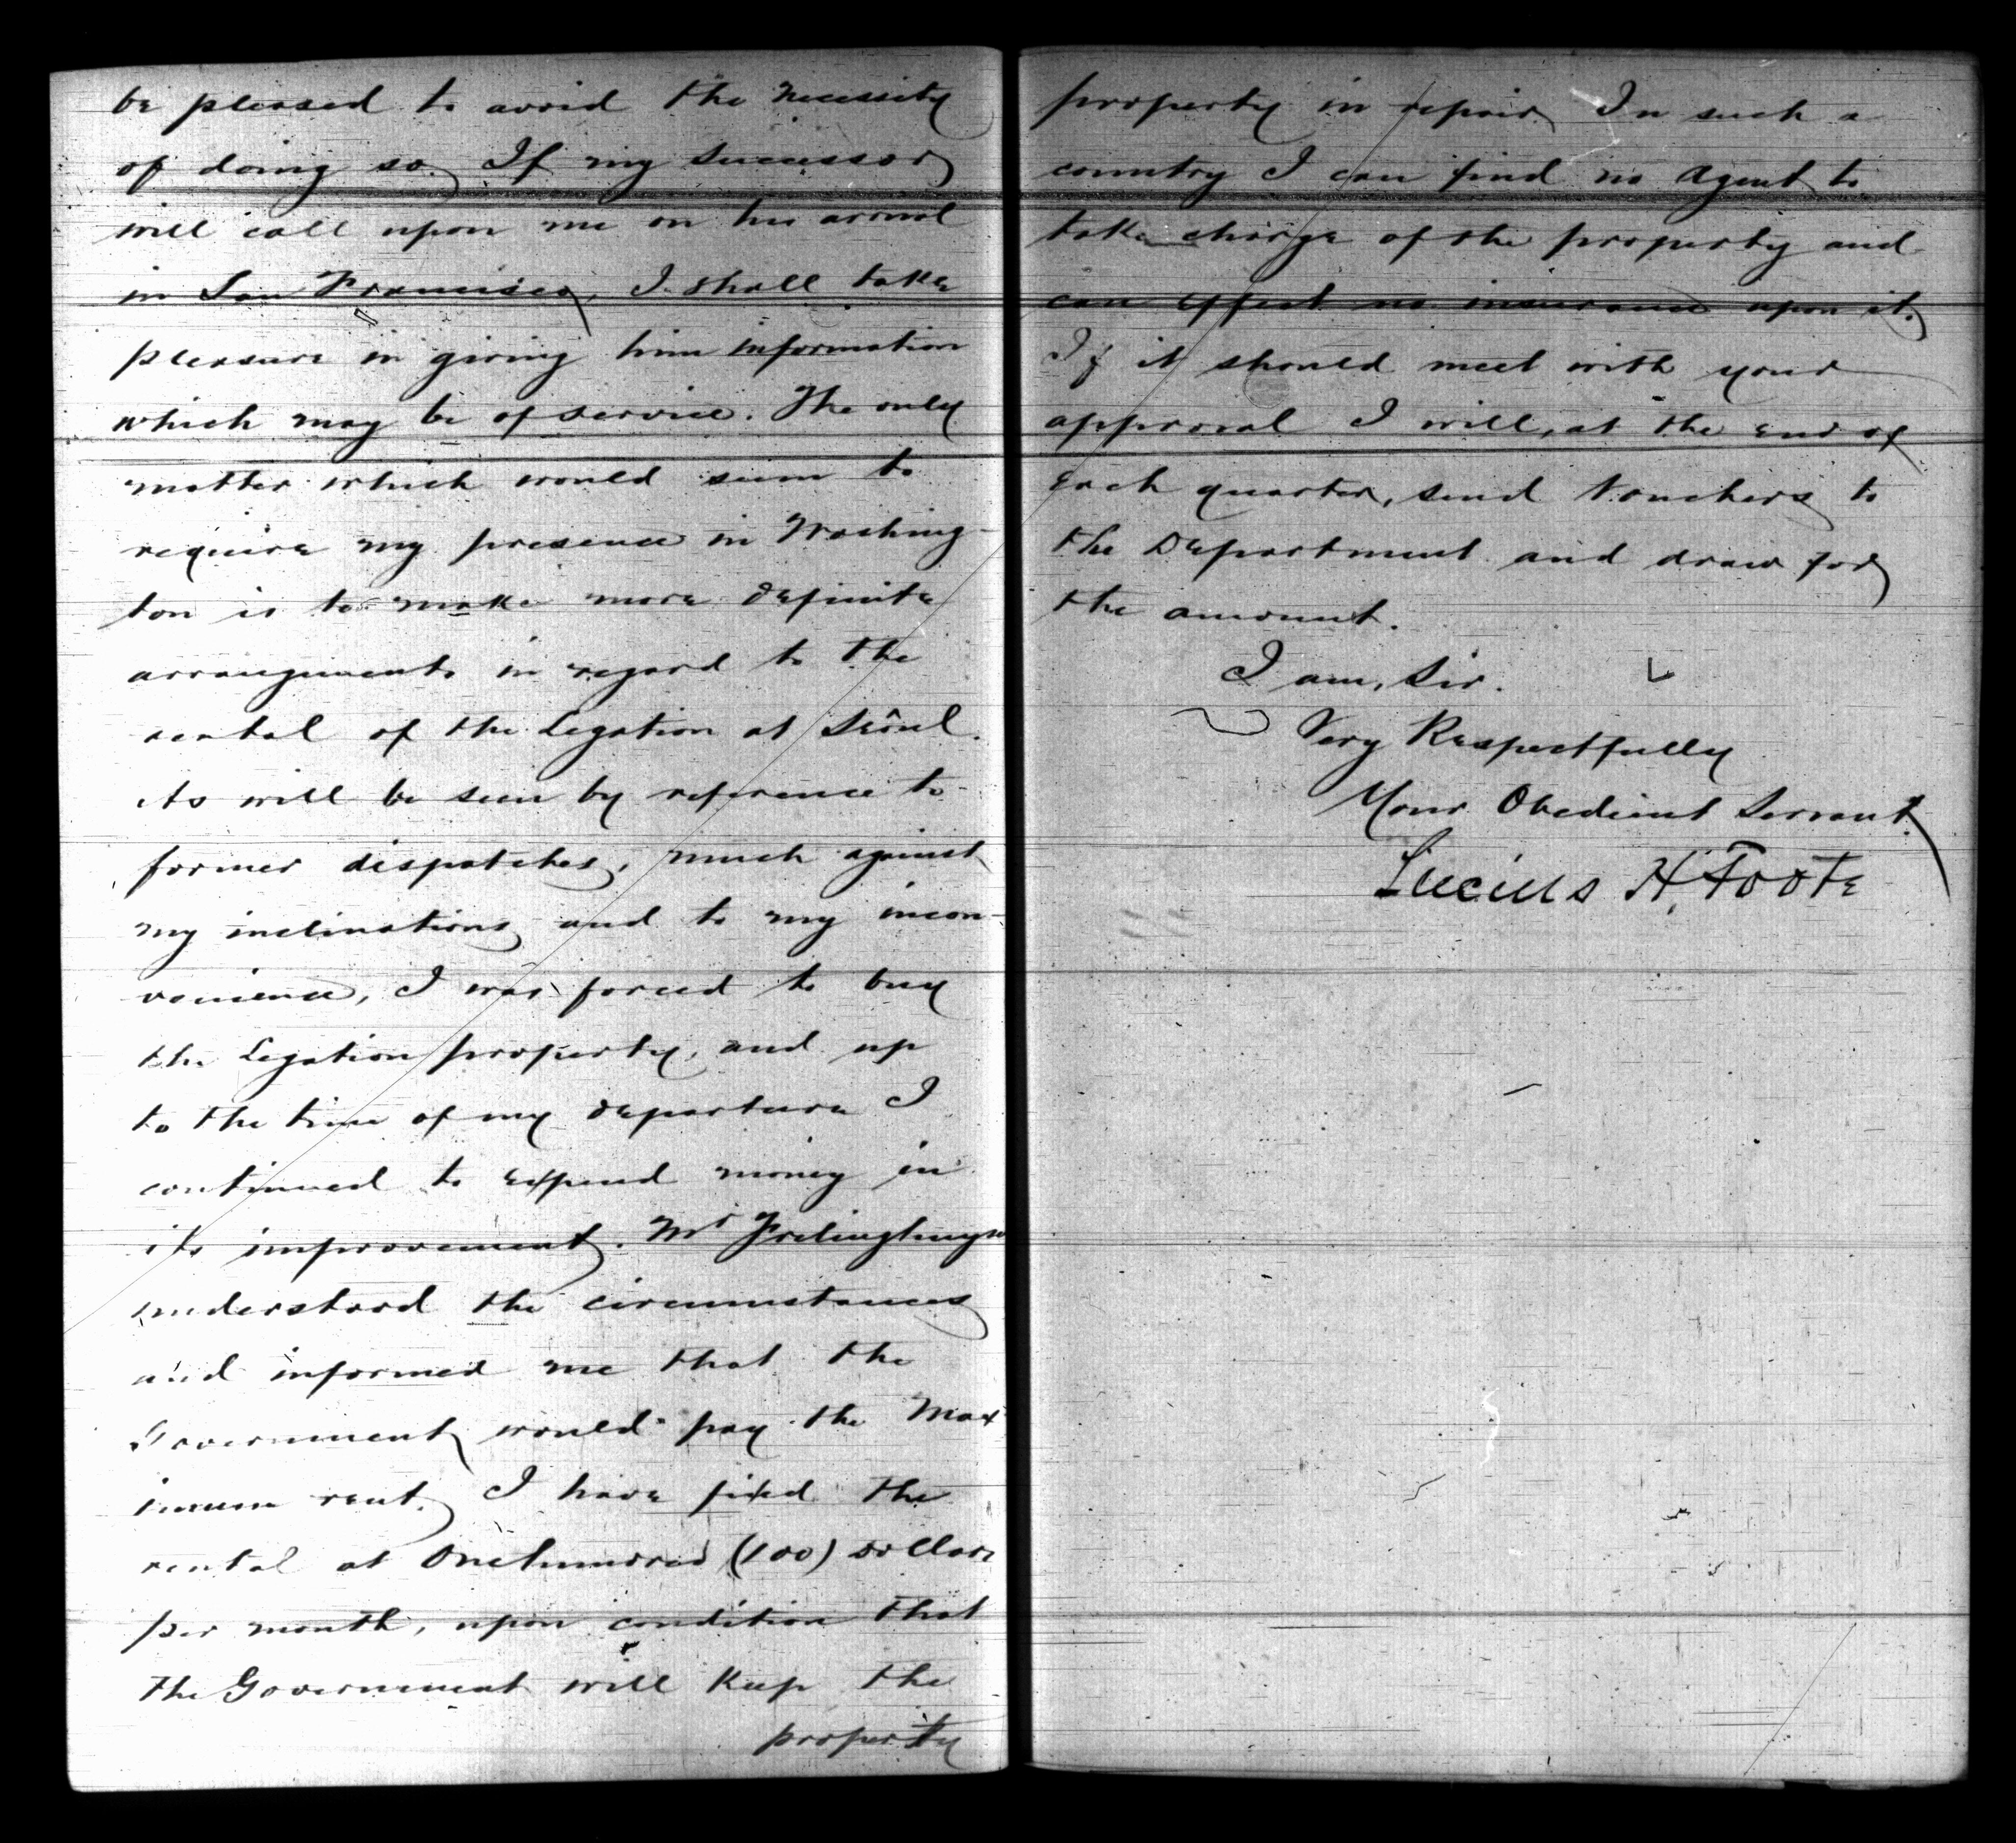 be pleased to avoid the necessity
of doing so. If my successor
will call upon me on his arrival
in San Francisco, I shall take
pleasure in giving him information
which may be of service. The only
matter which would seem to
require my presence in Washing-
ton is to make more definite
arrangements in regard to the
rental of the Legation at Sëoul.
As will be seen by reference to
former dispatches, much against
my inclinations and to my incon-
venience, I was forced to buy
the Legation property, and up
to the time of my departure I
continued to expend money in
its improvement. Mr Frelinghuysn
understood the circumstances
and informed me that the
Government would pay the Max
imum rent. I have fixed the
rental at One hundred (100) Dollars
per month, upon condition that
the Government will keep the
property
property in repair. In such a
country I can find no Agent to
take charge of the property and
can effect no insurance upon it.
If it should meet with your
approval I will, at the end of
each quarter, send Vouchers to
the Department and draw for
the amount.
I am, Sir.
Very Respectfully
Your Obedient Servant
Lucius H. Foote